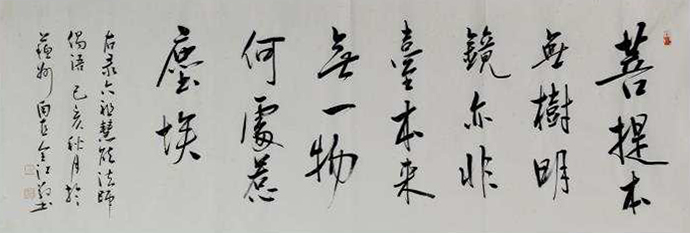 菩提本
無樹明
鏡亦非
臺本来
無一物
何處惹
塵埃
右录六祖慧能法師
偈語 己亥秋月於
蘓州